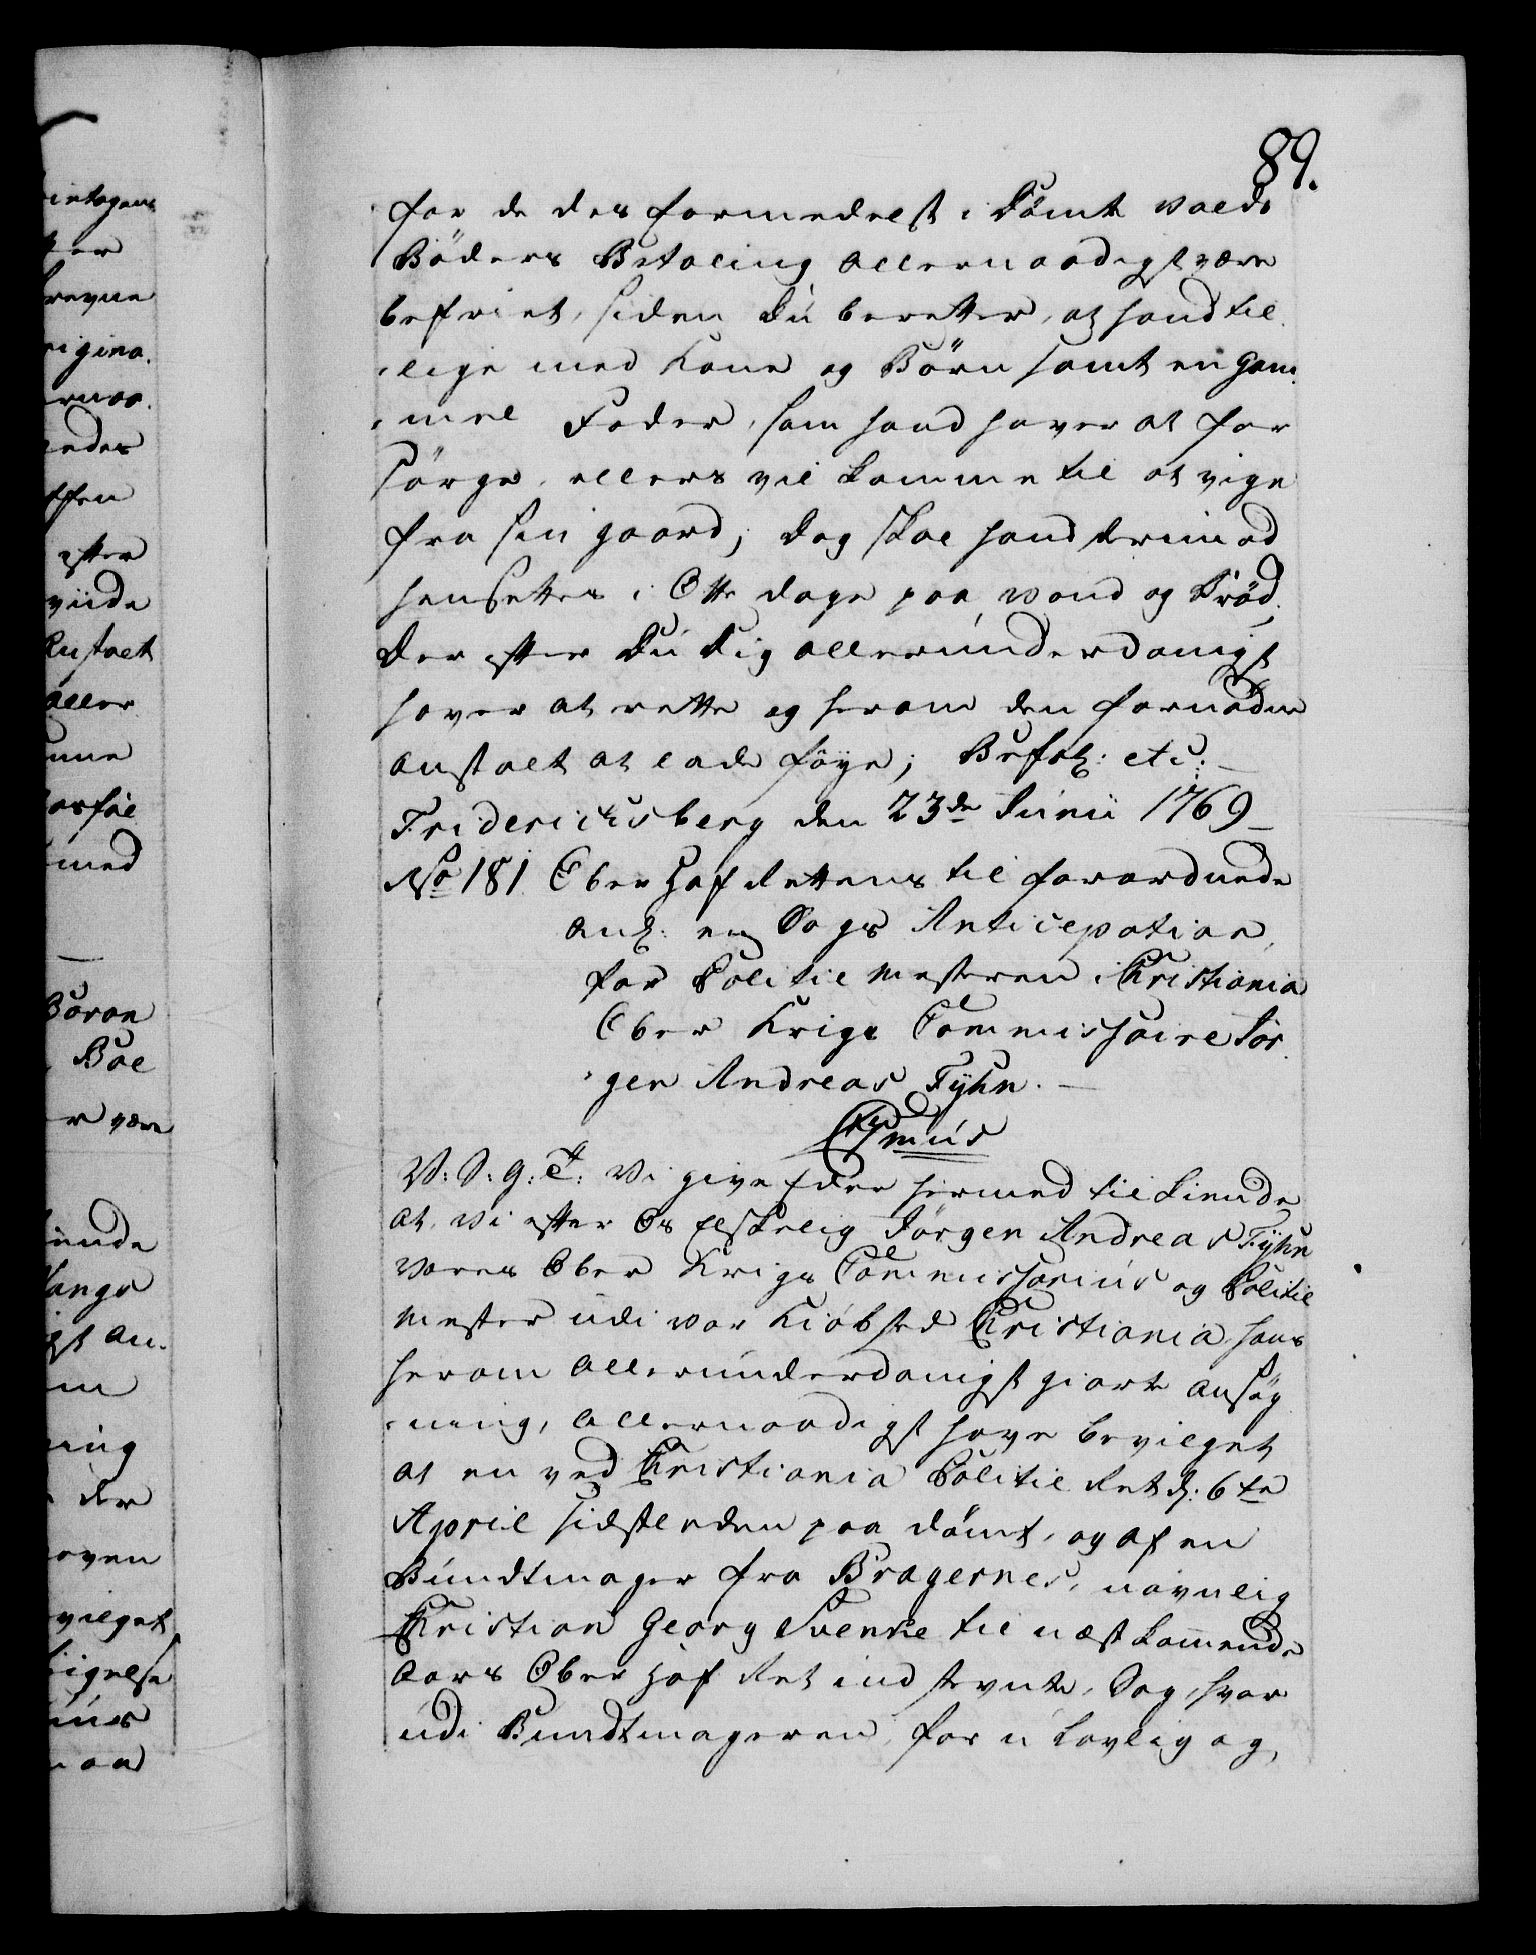 89.
for de des formedelst i Dömte Volds
Böders Betaling allernaadigst være
befriet, siden Du beretter, at hand til
lige med Kone og Börn samt en gam
mel Fader, som hand haver at for
sörge, ellers vil komme til at vige
fra sin gaard; dog skal hand derimod
hensettes i Otte dage paa Vand og Bröd,
Der efter Du Dig allerunderdanigst
haver at rette og herom den fornödne
anstalt at lade föye; Befal: etc:
Friderichsberg den 23de Junii 1769
No 181 Ober Hof Rettens til forordnede
ang: en Sags Anticipation
for Politie Mesteren i Christiania
Ober Krigs Commissaire Jör
gen Andreas Fyhn.
C7mus
V: S: G: T: Vi give Eder hermed tilkiende
at, vi efter Os Elskelig Jörgen Andreas Fyhn
Vores Ober Krigs Commissarius og Politie
Mester udi vor Kiöbsted Christiania hans
herom allerunderdanigst giorte ansög
ning, allernaadigst have bevilget
at en ved Christiania Politie Ret d: 6te
April sidstleden paa dömt, og af en
Bundtmager fra Bragernes, navnlig
Christian Georg Svenke til næstkommende
Aars Ober Hof Ret ind stevnte, Sag, hvor
udi Bundtmageren, for u lovlig og,